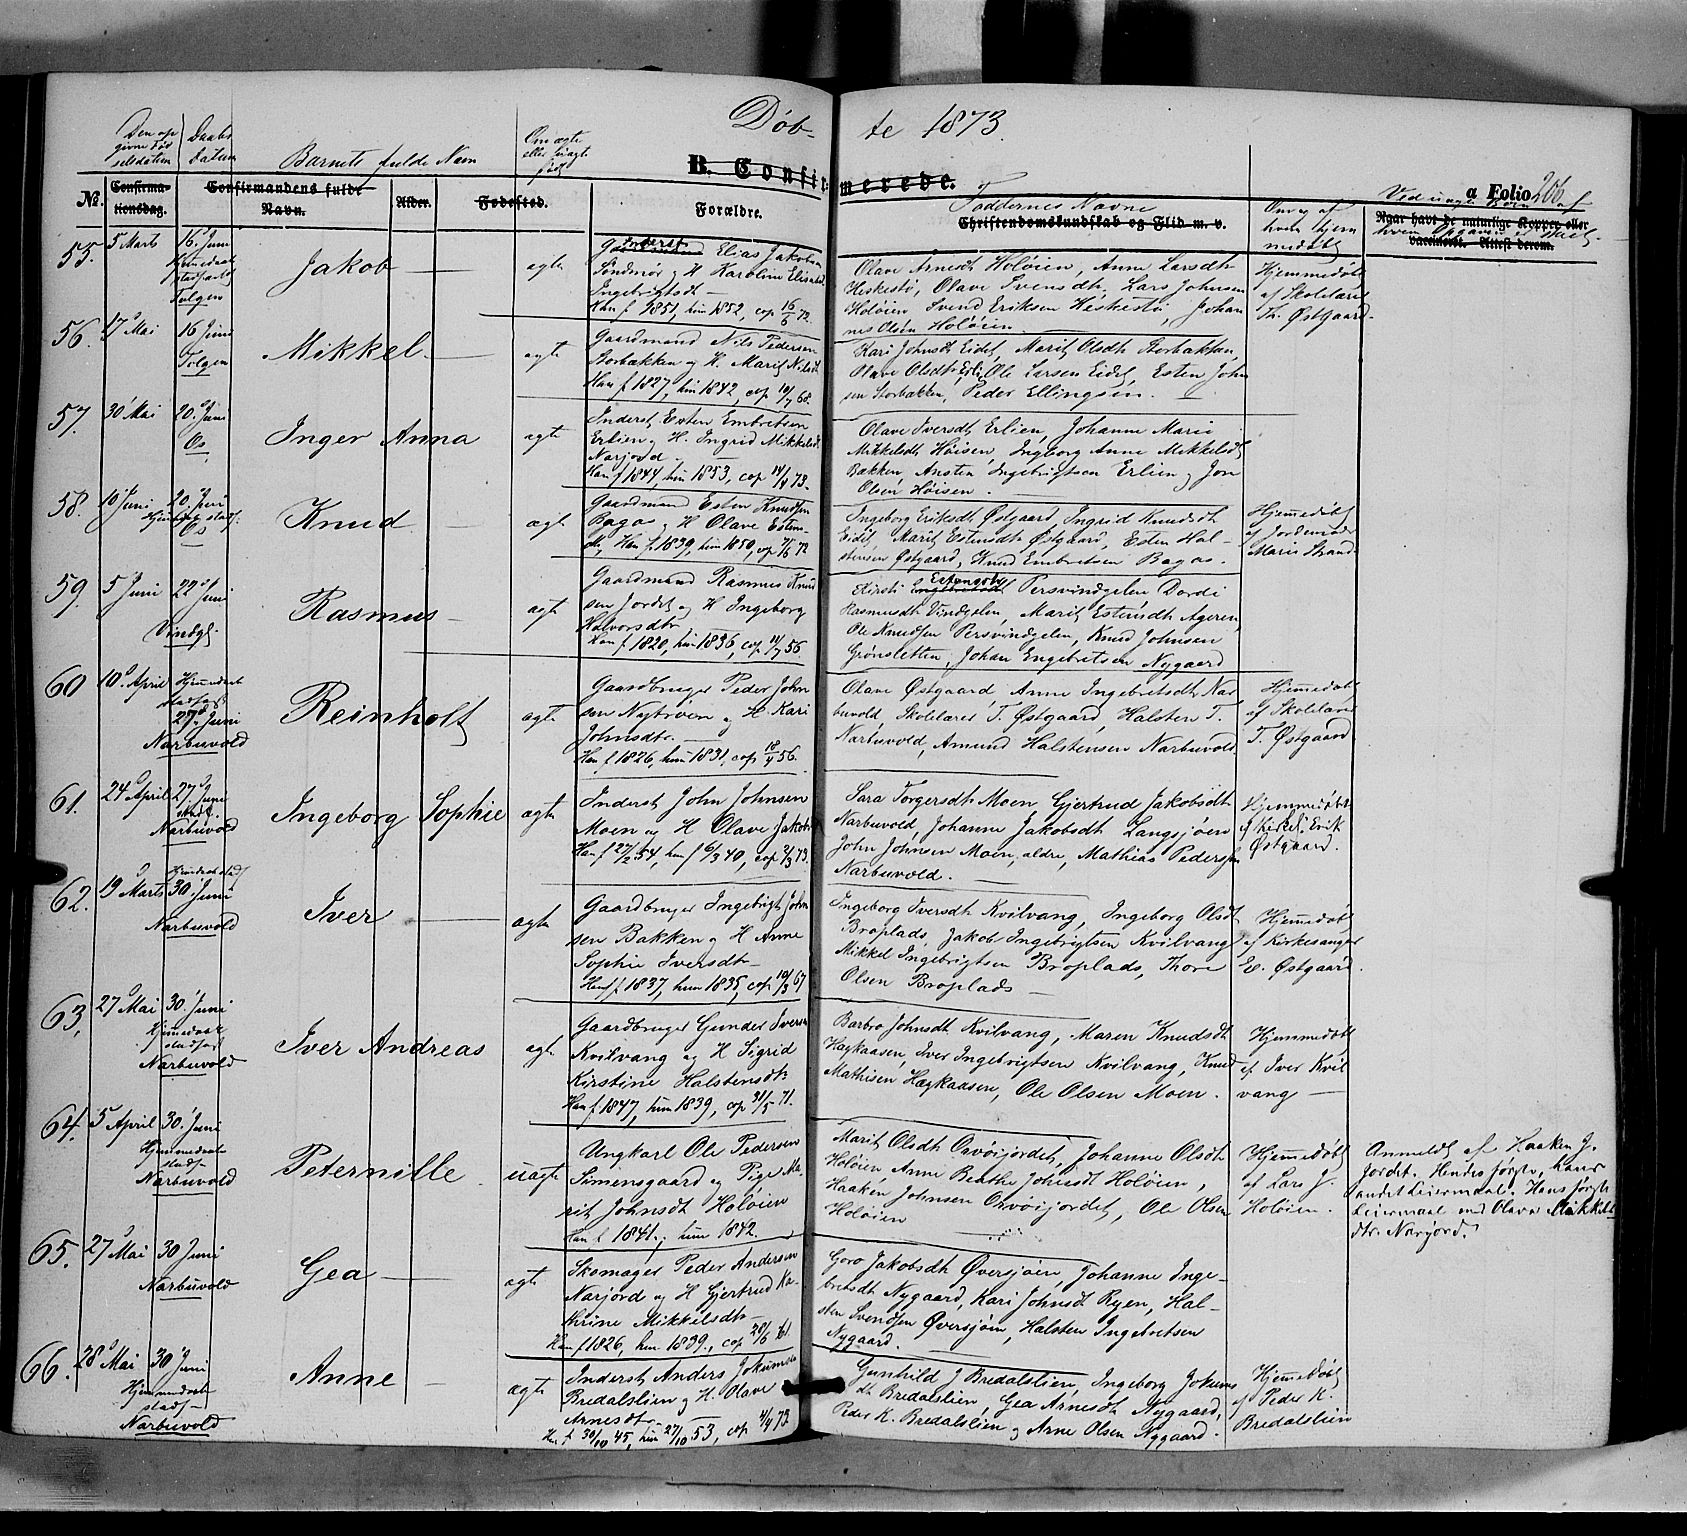 Døb-
te 1873
Den op
givne Fød
selsdatum
Daabs
datum
Barnets fulde Navn
Om ægte
eller uægte
født
B. Confir-
merede.
a Folio 206
№.
Confirma-
tionsdag.
Confirmandens fulde
Navn.
Alder.
Fødested.
Forældre.
Faddernes Navne
Christendomskundskab og Flid m. v.
Om og af
hvem hjem
medøbt
Ved uægte Børn af
Naar havt de naturlige Kopper eller
vaccineret. Attest derom.
55.
5 Marts
16 Juni
Hjemmedaab
stadfæstet
Tolgen
Jakob
ægte
Inderst Elias Jakobsen
Søndmør og H Karoline Elisabet
Ingebrigtsdt
Han f. 1851, hun 1852, cop 16/6 72.
Olave Arnesdt Holøien, Anne Larsdtr
Heskestø, Olave Svensdtr. Lars Johnsen
Holøien Svend Eriksen Heskestø, Johan
nes Olsen Holøien
Hjemmedøbt
af Skolelærer
Tr. Østgaard.
56.
17 Mai
16 Juni
Tolgen
Mikkel
ægte
Gaardmand Nils Pedersen
Storbækken og H. Marit Nilsdt
Han f 1827, hun 1842, cop 10/7 68.
Kari Johnsdt Eidet, Marit Olsdtr Storbækken,
Olave Olsdtr Erli, Ole Larsen Eidet, Esten John
sen Storbækken, Peder Ellingsen.
57.
30 Mai
20 Juni
Os
Inger Anna
ægte
Inderst Esten Embretsen
Erlien og H. Ingrid Mikkelsdt.
Narjord.
Han f 1844, hun 1853, cop 14/4 73.
Olave Iversdt Erlien, Johanne Marie
Mikkelsdt Høisen, Ingeborg Anne Mikkelsdt
Bakken, Ansten Ingebrigtsen Erlien og Jon
Olsen Høisen.
58.
10 Juni
20 Juni
Os
Knud
ægte
Gaardmand Esten Knudsen
Bagas og H Olave Estens
dtr, Han f. 1839, hun 1850, cop 72
Ingeborg Eriksdt Østgaard, Ingrid Knudsdt
Eidet, Marit Estensdt Østgaard, Esten Hal-
stensen Østgaard, Knud Embretsen Bagas.
Hjemmedøbt
af Jordemoder
Marie Strand
59.
5 Juni
22 Juni
Vindgl.
Rasmus
ægte
Gaardmand Rasmus Knud
sen Jordet og H Ingeborg
Halvorsdtr
Han f. 1820, hun 1836, cop 11/7 56.
Kirsti Estensdt Persvindgelen Dordi
Rasmusdt Vindgelen, Marit Estensdt Ageren,
Ole Knudsen Persvindgelen, Knud Johnsen
Grønsletten, Johan Engebretsen Nygaard
60
10 April
Hjemmedaab
stadfæst
27 Juni
Narbuvold
Reinholt
ægte
Gaardbruger Peder John
sen Nytrøen og H Kari
Johnsdtr.
Han f. 1826, hun 1831, cop 18/4 56.
Olave Østgaard Anne Ingebretsdt Nar
buvold, Skolelærer T. Østgaard, Halsten T.
Narbuvold, Amund Halstensen Narbuvold
Hjemmedøbt
af Skolelærer
T. Østgaard
61.
24 April
27 Juni
stadf.
Narbuvold
Ingeborg Sophie
ægte
Inderst John Johnsen
Moen og H Olave Jakobs
Han f 27/2 54, hun f 6/3 40, cop 2/3 73.
Sara Torgersdtr Moen Gjertrud Jakobsdt
Narbuvold, Johanne Jakobsdt Langsjøen
John Johnsen Moen, ældre, Mathias Pedersen
Narbuvold.
Hjemmedøbt
af Kirkes. Erik
Østgaard.
62.
19 Marts
30 Juni
Narbuvold
Iver
ægte
Gaardbruger Ingebrigt John
sen Bakken og H Anne
Sophie Iversdtr
Han f. 1837, hun 1835, cop 10/3 67
Ingeborg Iversdtr Kvilvang, Ingeborg Olsdt
Broplads, Jakob Ingebrigtsen Kvilvang
Mikkel Ingebrigtsen Broplads, Thore
Olsen Broplads
Hjemmedøbt
af Kirkesanger
E. Østgaard.
63.
27 Mai
30 Juni
Hjemmedaab
stadfæst
Narbuvold
Iver Andreas
ægte
Gaardbruger Gunder Iversen
Kvilvang og H Sigrid
Kirstine Halstensdtr
Han f. 1847, hun 1839, cop 31/5 71.
Barbro Johnsdt Kvilvang, Maren Knudsdt
Høgkaasen, Iver Ingebrigtsen Kvilvang, Knud
Mathisen Høgkaasen, Ole Olsen Moen.
Hjemmedøbt
af Iver Kvil
vang
64.
5 April
30 Juni
Hjemmedaab
stadf
Narbuvold
Peternille
uægte
Ungkarl Ole Pedersen
Simensgaard og Pige Ma-
rit Johnsdt Holøien
Han f. 1841, hun 1842.
Marit Olsdt Orvøijordet, Johanne Olsdt
Holøien Anne Beathe Johnsdt Holøien,
Haaken Johnsen Orvøijordet, Ole Olsen
Holøien
Hjemmedøbt
af Lars J.
Holøien.
Anmeldt af Haaken J.
Jordet. Hendes første, hans
andet Leiermaal. Hans første
Leiermaal med Olava Mikkels
dtr. Narjord.
65.
27 Mai
30 Juni
Narbuvold
Gea
ægte
Skomager Peder Andersen
Narjord og H Gjertrud Ka-
thrine Mikkelsdtr
Han f. 1826, hun 1839, cop 28/6 61
Goro Jakobsdt Øversjøen, Johanne Inge-
bretsdt Nygaard, Kari Johnsdt Ryen, Hal-
sten Svendsen Øversjøen, Halsten Ingebretsen
Nygaard.
66.
28 Mai
30 Juni
Hjemmedaab
stadf
Narbuvold
Anne
ægte
Inderst Anders Jokumsen
Bredalslien og H. Olave
Arnesdtr
Han f 30/10 45, hun 27/10 53, cop 4/4 73
Gunhild J Bredalslien, Ingeborg Jokums
dt Bredalslien, Gea Arnesdt Nygaard,
Peder K. Bredalslien og Arne Olsen Nygaard.
Hjemmedøbt
af Peder K.
Bredalslien